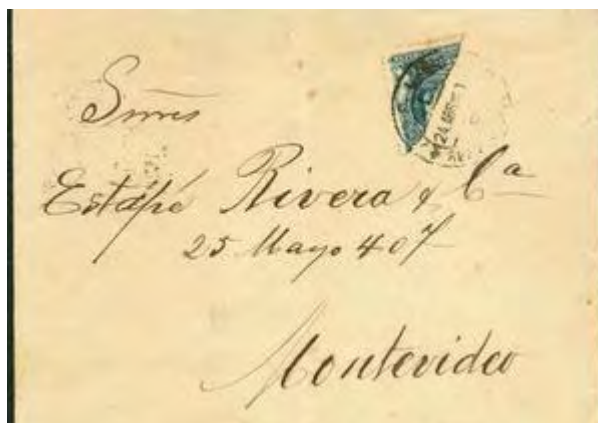 Snres
Estapé Rivera & Cª
25 Mayo 407
Montevideo
24 ABR